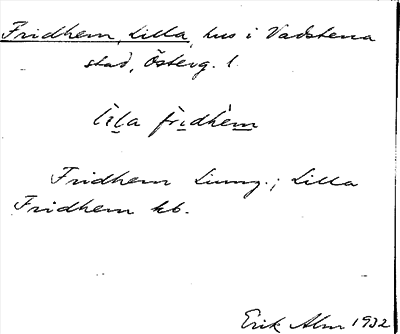 Fridhem, Lilla, hus i Vadstena
stad, Österg. l.
lìla frìdhèm
Fridhem Ljung.; Lilla
Fridhem kb.
Erik Alm 1932